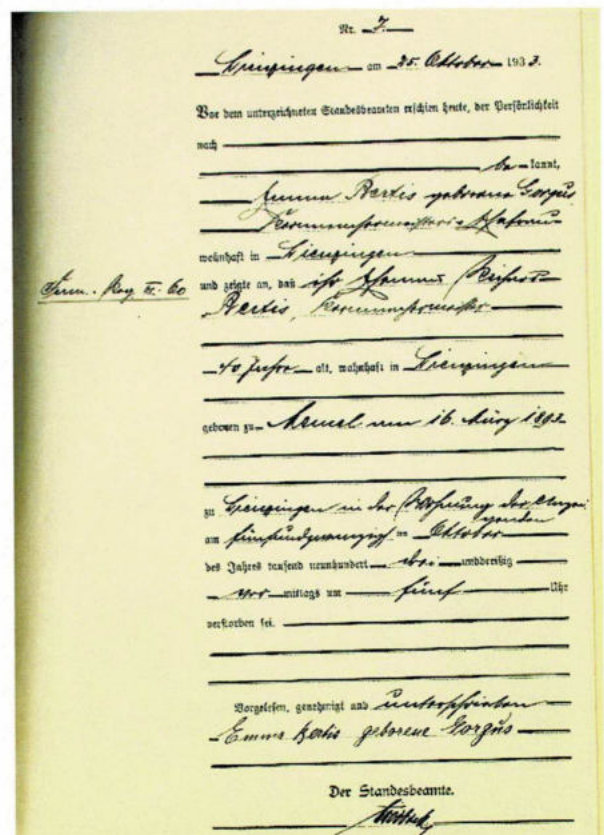 Nr. 7.
Lienzingen am 25. Oktober 1933.
Vor dem unterzeichneten Standesbeamten erschien heute, der Persönlichkeit
nach
be kannt,
Emma Bertis geborene Gorgus
Ehefrau
wohnhaft in Lienzingen
Fam. Reg. III. 60
und zeigte an, daß ihr Ehemann Richard
Bertis,
40 Jahre alt, wohnhaft in Lienzingen
geboren zu Memel am 16. März 1893
zu Lienzingen in der Wohnung der Anzei
genden
am fünfundzwanzigsten Oktober
des Jahres tausend neunhundert drei unddreißig
vor mittags um fünf Uhr
verstorben sei.
Vorgelesen, genehmigt und unterschrieben
Emma Bertis geborene Gorgus
Der Standesbeamte.